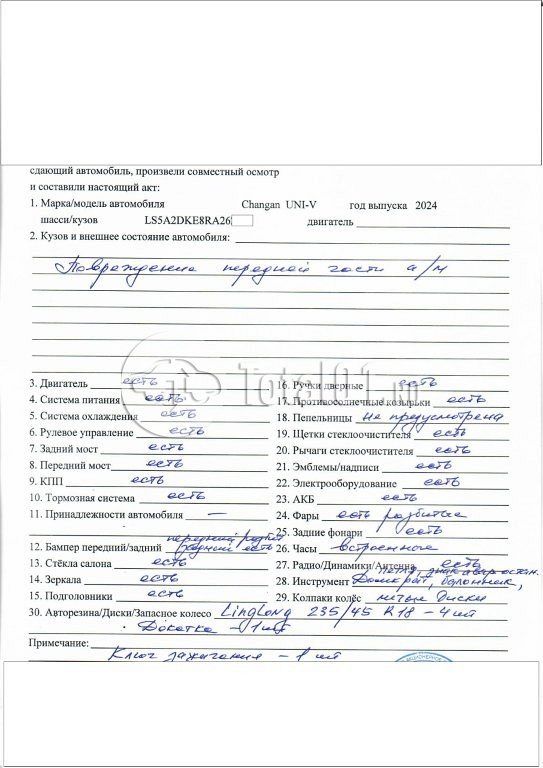 сдающий автомобиль, произвели совместный осмотр
и составили настоящий акт:
1. Марка/модель автомобиля Changan UNI-V год выпуска 2024
шасси/кузов LS5A2DKE8RA26 двигатель
2. Кузов и внешнее состояние автомобиля:
Повреждение передней части а/м
Total01.ru
3. Двигатель есть 16. Ручки дверные есть
4. Система питания есть 17. Противосолнечные козырьки есть
5. Система охлаждения есть 18. Пепельницы не предусмотрена
6. Рулевое управление есть 19. Щетки стеклоочистителя есть
7. Задний мост есть 20. Рычаги стеклоочистителя есть
8. Передний мост есть 21. Эмблемы/надписи есть
9. КПП есть 22. Электрооборудование есть
10. Тормозная система есть 23. АКБ есть
11. Принадлежности автомобиля — 24. Фары есть разбитые
25. Задние фонари есть
передний
12. Бампер передний/задний задний есть 26. Часы встроенные
13. Стёкла салона есть 27. Радио/Динамики/Антенна есть
петля, знак авар. остан.
14. Зеркала есть 28. Инструмент Домкрат, балонник,
15. Подголовники есть 29. Колпаки колёс литые диски
30. Авторезина/Диски/Запасное колесо LingLong 235/45 R18 – 4 шт
Докатка – 1 шт
Примечание:
Ключ зажигания – 1 шт